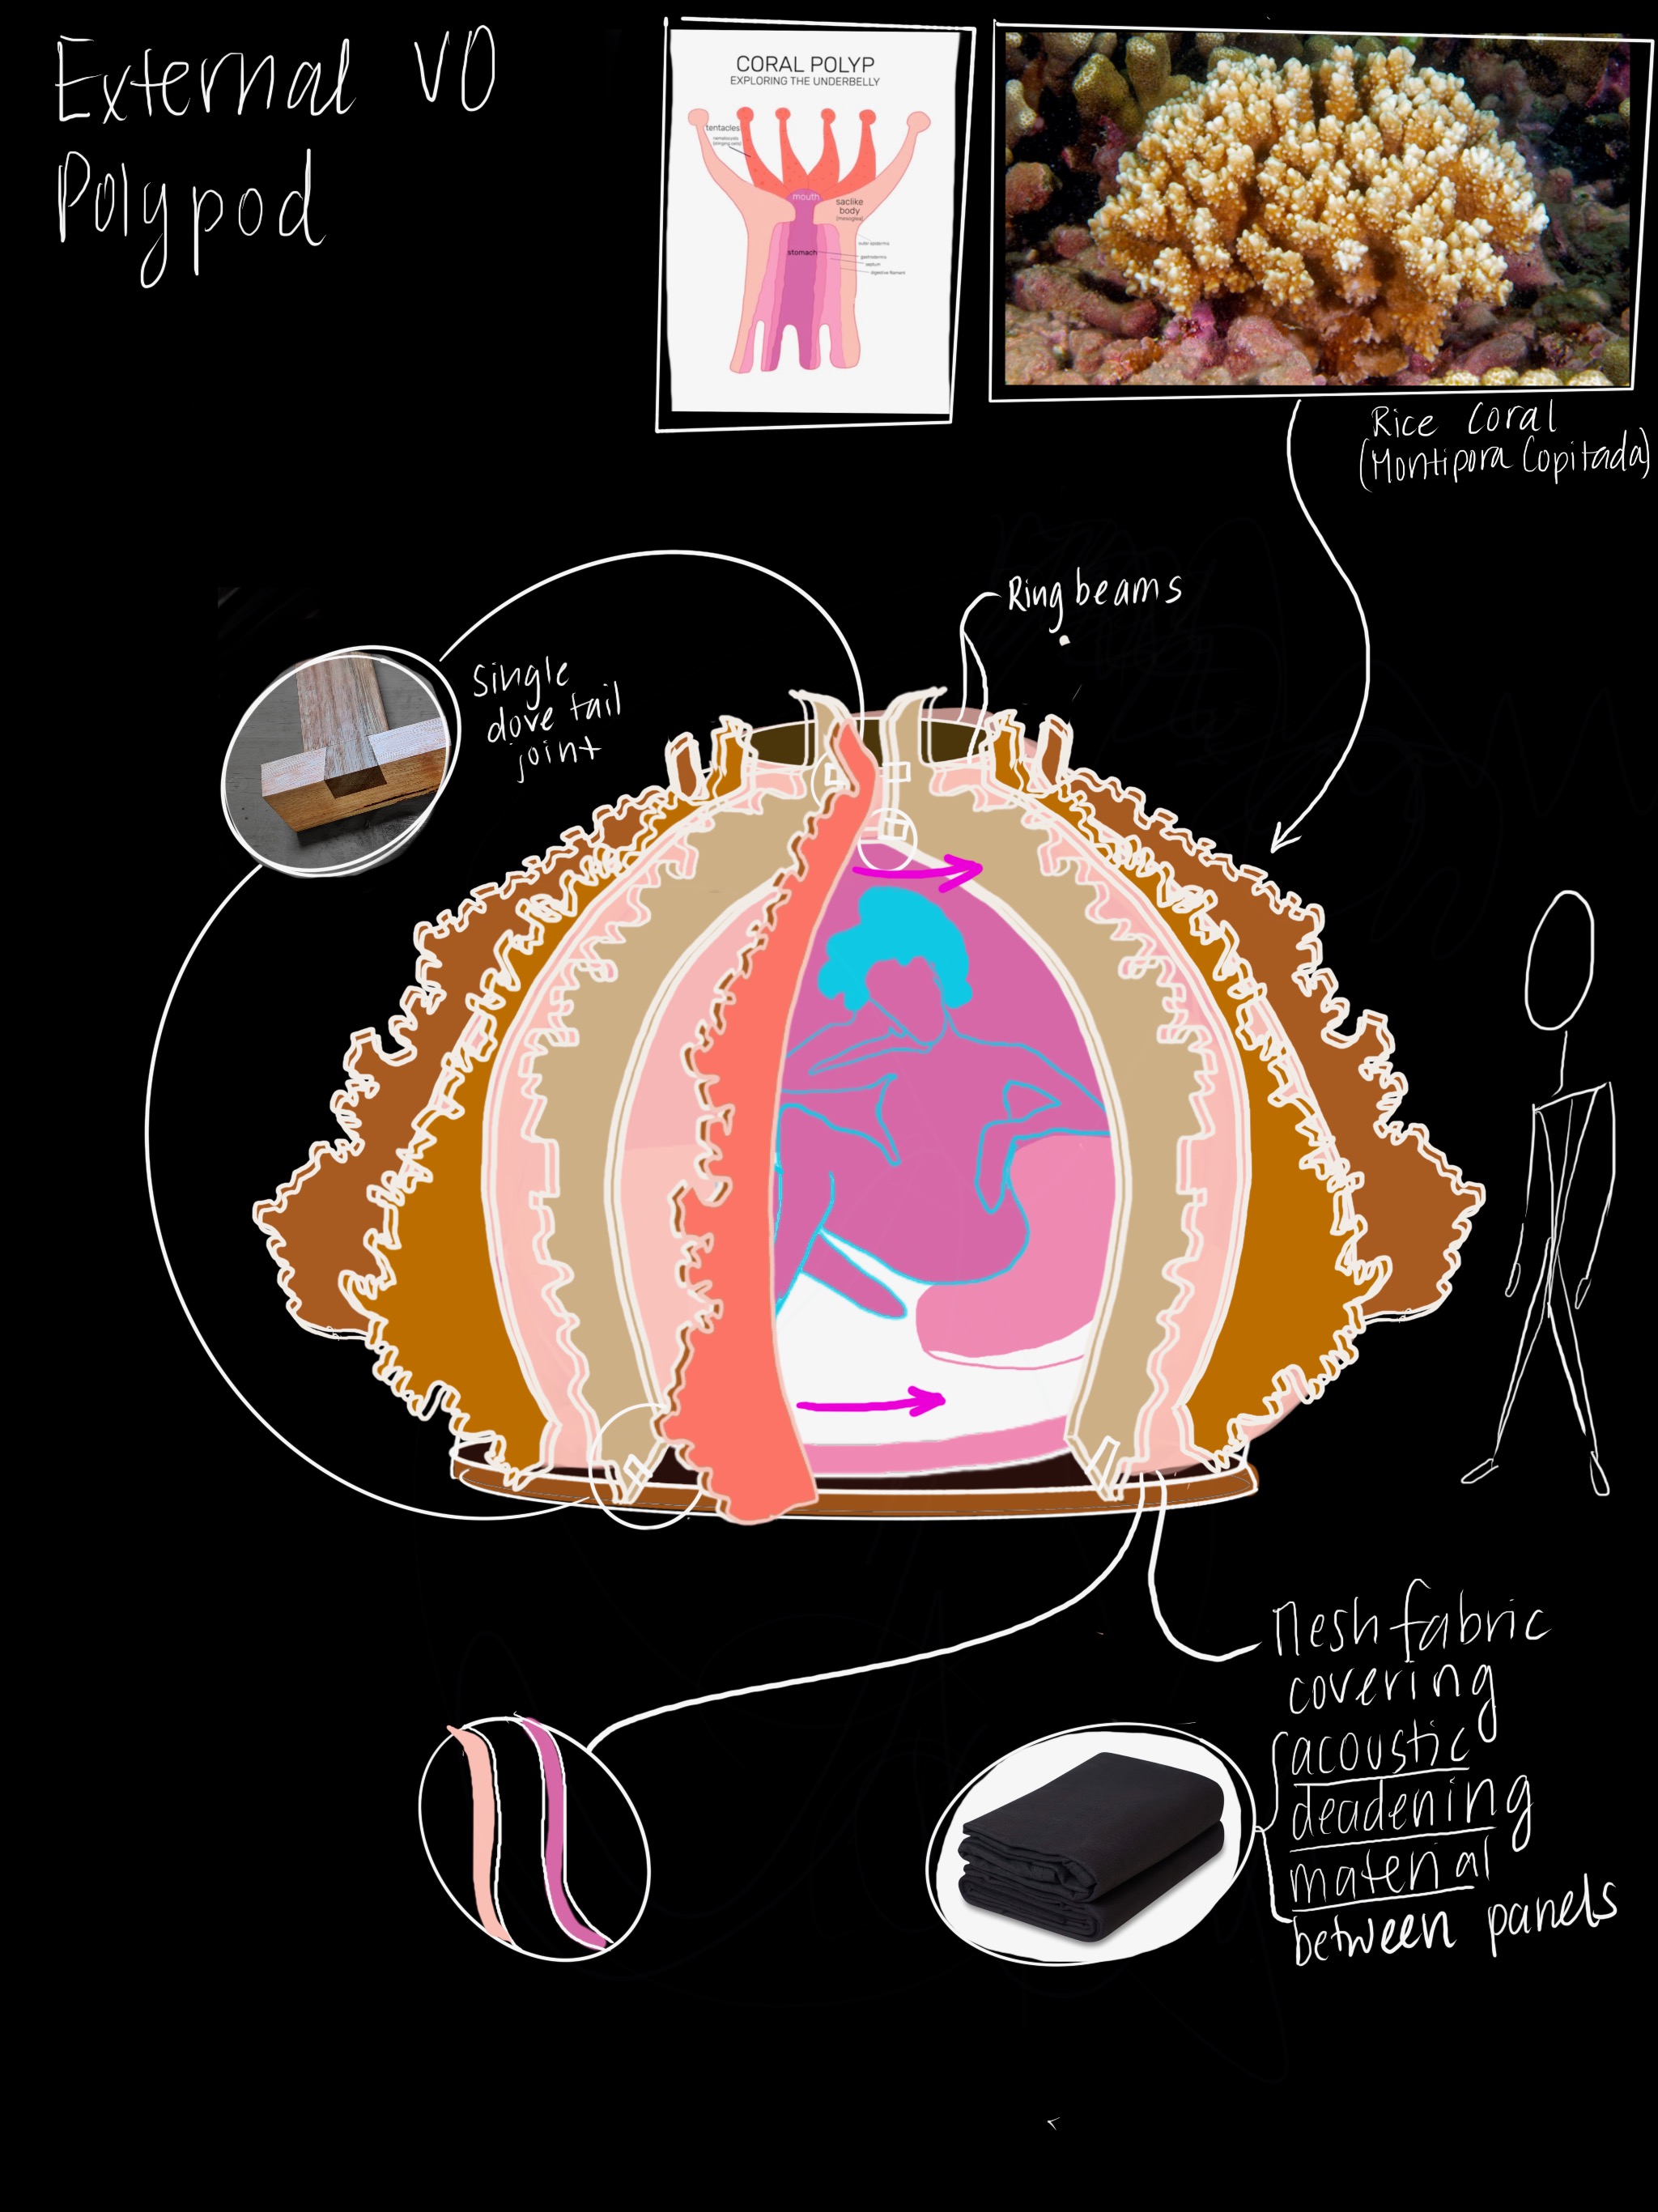 External VO
Polypod
CORAL POLYP
EXPLORING THE UNDERBELLY
tentacles
nematocysts
(stinging cells)
mouth
saclike
body
(mesoglea)
outer epidermis
stomach
gastrodermis
septum
digestive filament
Rice Coral
(Montipora Copitada)
Ring beams
Single
dove tail
joint
Mesh fabric
covering
acoustic
deadening
material
between panels